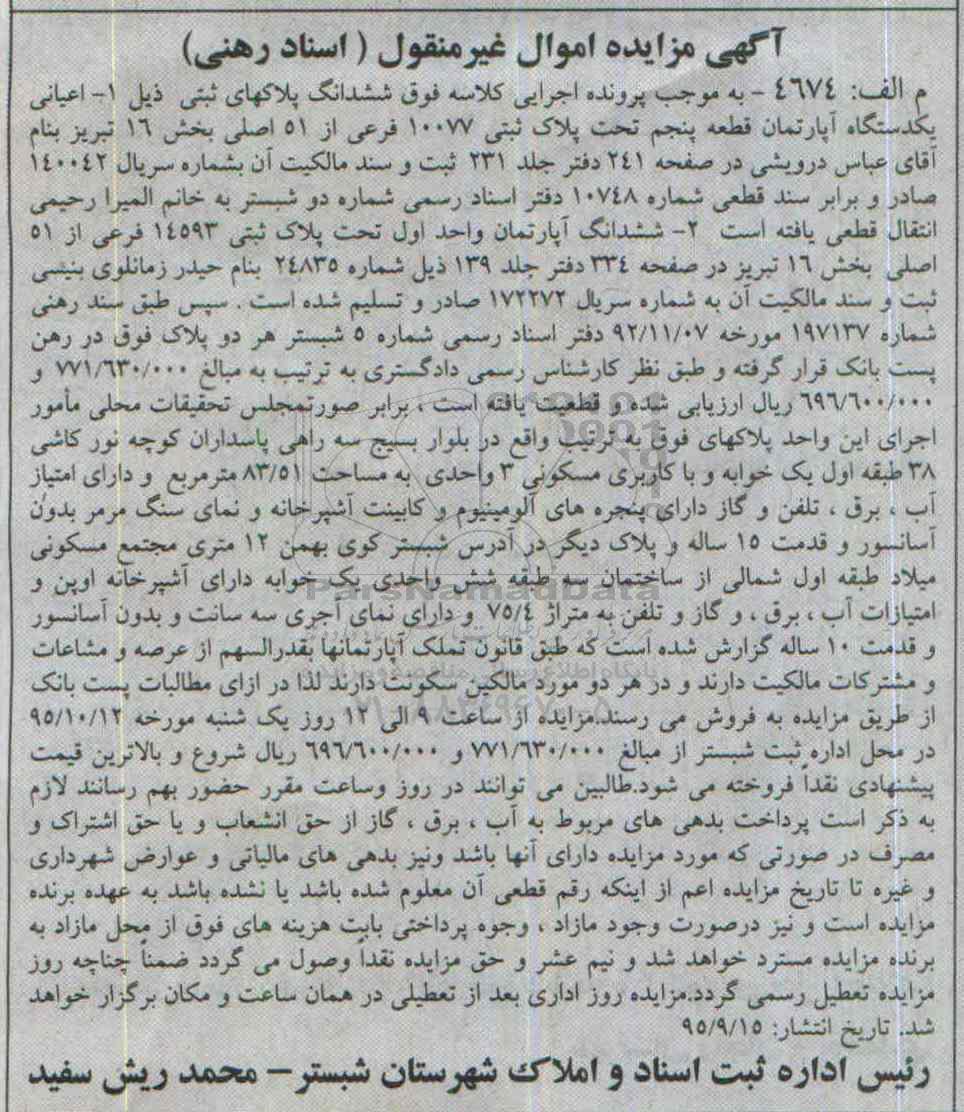 آگهی مزایده اموال غیرمنقول ( اسناد رهنی)
م الف: ٤٦٧٤ - به موجب پرونده اجرایی کلاسه فوق ششدانگ پلاکهای ثبتی ذیل ۱- اعیانی
یکدستگاه آپارتمان قطعه پنجم تحت پلاک ثبتی ۱۰۰۷۷ فرعی از ۵۱ اصلی بخش ۱۶ تبریز بنام
آقای عباس درویشی در صفحه ۲٤۱ دفتر جلد ۲۳۱ ثبت و سند مالکیت آن بشماره سریال ۱٤۰۰٤۲
صادر و برابر سند قطعی شماره ۱۰۷٤۸ دفتر اسناد رسمی شماره دو شبستر به خانم المیرا رحیمی
انتقال قطعی یافته است ۲- ششدانگ آپارتمان واحد اول تحت پلاک ثبتی ۱٤۵۹۳ فرعی از ۵۱
اصلی بخش ۱۶ تبریز در صفحه ۳۳٤ دفتر جلد ۱۳۹ ذیل شماره ۲٤۸۳۵ بنام حیدر زمانلوی بنیسی
ثبت و سند مالکیت آن به شماره سریال ۱۷۲۲۷۲ صادر و تسلیم شده است . سپس طبق سند رهنی
شماره ۱۹۷۱۳۷ مورخه ۹۲/۱۱/۰۷ دفتر اسناد رسمی شماره ۵ شبستر هر دو پلاک فوق در رهن
پست بانک قرار گرفته و طبق نظر کارشناس رسمی دادگستری به ترتیب به مبالغ ۷۷۱/۶۳۰/۰۰۰ و
۶۹۶/۶۰۰/۰۰۰ ریال ارزیابی شده و قطعیت یافته است ، برابر صورتمجلس تحقیقات محلی مأمور
اجرای این واحد پلاکهای فوق به ترتیب واقع در بلوار بسیج سه راهی پاسداران کوچه نور کاشی
۳۸ طبقه اول یک خوابه و با کاربری مسکونی ۳ واحدی به مساحت ۸۳/۵۱ مترمربع و دارای امتیاز
آب ، برق ، تلفن و گاز دارای پنجره های آلومینیوم و کابینت آشپرخانه و نمای سنگ مرمر بدون
آسانسور و قدمت ۱۵ ساله و پلاک دیگر در آدرس شبستر کوی بهمن ۱۲ متری مجتمع مسکونی
میلاد طبقه اول شمالی از ساختمان سه طبقه شش واحدی یک خوابه دارای آشپرخانه اوپن و
امتیازات آب ، برق ، و گاز و تلفن به متراژ ۷۵/٤ و دارای نمای آجری سه سانت و بدون آسانسور
و قدمت ۱۰ ساله گزارش شده است که طبق قانون تملک آپارتمانها بقدرالسهم از عرصه و مشاعات
و مشترکات مالکیت دارند و در هر دو مورد مالکین سکونت دارند لذا در ازای مطالبات پست بانک
از طریق مزایده به فروش می رسند.مزایده از ساعت ۹ الی ۱۲ روز یک شنبه مورخه ۹۵/۱۰/۱۲
در محل اداره ثبت شبستر از مبالغ ۷۷۱/۶۳۰/۰۰۰ و ۶۹۶/۶۰۰/۰۰۰ ریال شروع و بالاترین قیمت
پیشنهادی نقداً فروخته می شود.طالبین می توانند در روز وساعت مقرر حضور بهم رسانند لازم
به ذکر است پرداخت بدهی های مربوط به آب ، برق ، گاز از حق انشعاب و یا حق اشتراک و
مصرف در صورتی که مورد مزایده دارای آنها باشد ونیز بدهی های مالیاتی و عوارض شهرداری
و غیره تا تاریخ مزایده اعم از اینکه رقم قطعی آن معلوم شده باشد یا نشده باشد به عهده برنده
مزایده است و نیز درصورت وجود مازاد ، وجوه پرداختی بابت هزینه های فوق از محل مازاد به
برنده مزایده مسترد خواهد شد و نیم عشر و حق مزایده نقداً وصول می گردد ضمناً چناچه روز
مزایده تعطیل رسمی گردد.مزایده روز اداری بعد از تعطیلی در همان ساعت و مکان برگزار خواهد
شد. تاریخ انتشار: ۹۵/۹/۱۵
رئیس اداره ثبت اسناد و املاک شهرستان شبستر - محمد ریش سفید
ParsNamadData